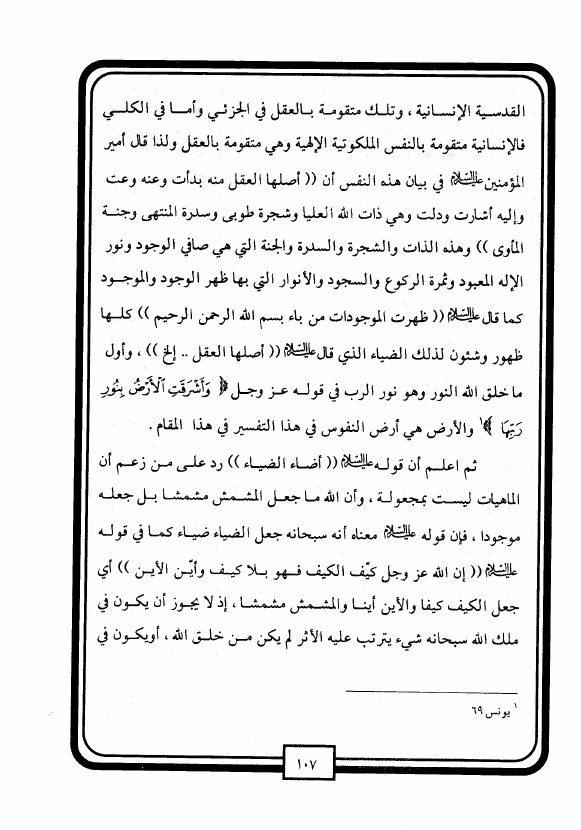 القدسية الإنسانية ، وتلك متقومة بالعقل في الجزئي وأما في الكلي
فالإنسانية متقومة بالنفس الملكوتية الإلهية وهي متقومة بالعقل ولذا قال أمير
المؤمنين عليه السلام في بيان هذه النفس أن (( أصلها العقل منه بدأت وعنه وعت
وإليه أشارت ودلت وهي ذات الله العليا وشجرة طوبى وسدرة المنتهى وجنة
المأوى )) وهذه الذات والشجرة والسدرة والجنة التي هي صافي الوجود ونور
الإله المعبود وثمرة الركوع والسجود والأنوار التي بها ظهر الوجود والموجود
كما قال عليه السلام (( ظهرت الموجودات من باء بسم الله الرحمن الرحيم )) كلها
ظهور وشئون لذلك الضياء الذي قال عليه السلام (( أصلها العقل .. إلخ )) ، وأول
ما خلق الله النور وهو نور الرب في قوله عز وجل ﴿ وَأَشْرَقَتِ الْأَرْضُ بِنُورِ
رَبِّهَا ﴾١ والأرض هي أرض النفوس في هذا التفسير في هذا المقام .
ثم اعلم أن قوله عليه السلام (( أضاء الضياء )) رد على من زعم أن
الماهيات ليست بمجعولة ، وأن الله ما جعل المشمش مشمشا بل جعله
موجودا ، فإن قوله عليه السلام معناه أنه سبحانه جعل الضياء ضياء كما في قوله
عليه السلام (( إن الله عز وجل كيّف الكيف فهو بلا كيف وأيّن الأين )) أي
جعل الكيف كيفا والأين أينا والمشمش مشمشا ، إذ لا يجوز أن يكون في
ملك الله سبحانه شيء يترتب عليه الأثر لم يكن من خلق الله ، أويكون في
١ يونس ٦٩
١٠٧